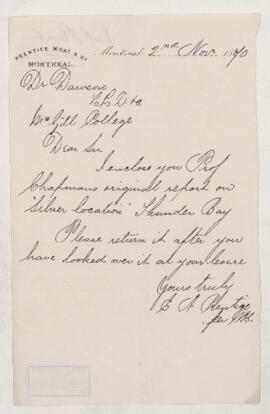 PRENTICE MOAT & Co
MONTREAL.
Montreal 2nd Nov. 1870
Dr Dawson
L.L.D &c
McGill College
Dear Sir
I enclose you Prof
Chapmans original report on
"Silver location" Thunder Bay
Please return it after you
have looked over it at your leisure
Yours truly
E A Prentice
per